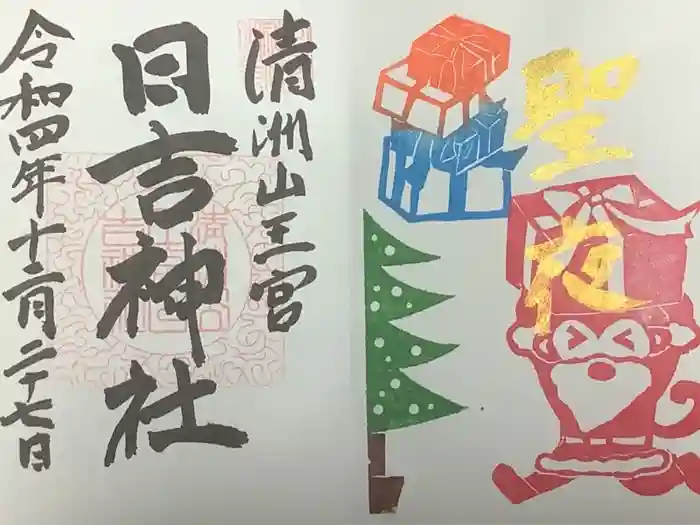 聖夜
清洲山王宮
日吉神社
令和四年十二月二十七日